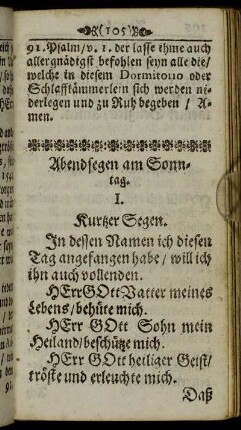 (105)
91. Psalm/ v. 1. der lasse ihme auch
allergnädigst befohlen seyn alle die/
welche in diesem Dormitorio oder
Schlaffkämmerlein sich werden ni-
derlegen und zu Ruh begeben / A-
men.
Abendsegen am Sonn-
tag.
I.
Kurtzer Segen.
In dessen Namen ich diesen
Tag angefangen habe/ will ich
ihn auch vollenden.
HErr GOtt Vatter meines
Lebens/ behüte mich.
HErr GOtt Sohn mein
Heiland/ beschütze mich.
HErr GOtt heiliger Geist/
tröste und erleuchte mich.
Daß